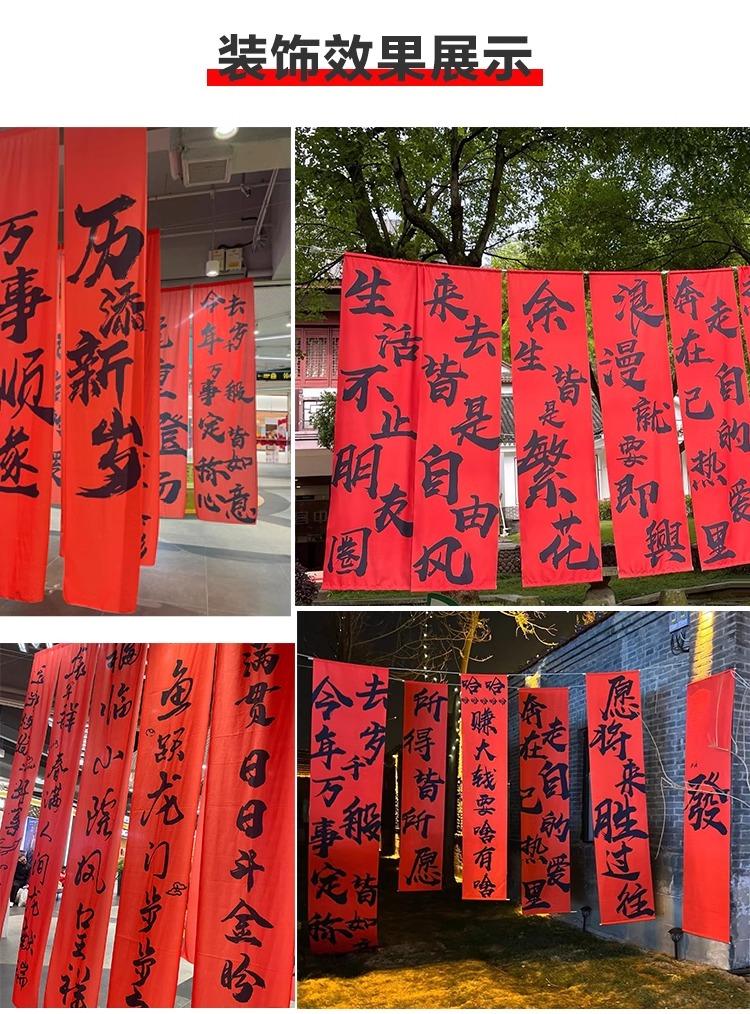 装饰效果展示
万事顺遂
历添新岁
去岁千般皆如意
今年万事定称心
生活不止朋友圈
来去皆是自由风
余生皆是繁花
浪漫就要即興
奔走在自己的热爱里
春满人间
福临小院凤呈祥
鱼跃龙门步步
满贯日日斗金
去岁千般皆如
今年万事定称
所得皆所愿
哈哈
赚大钱要啥有啥
奔走在自己的热爱里
愿将来胜过往
發